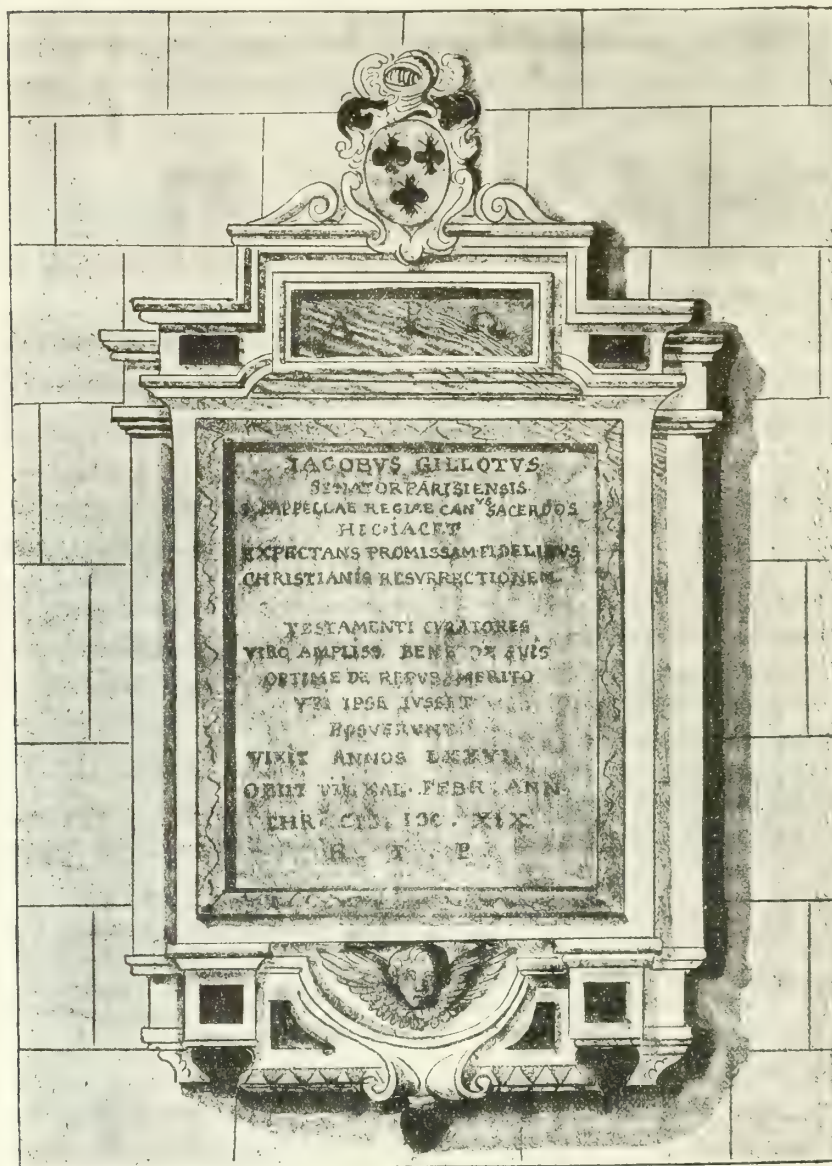 IACOBVS GILLOTVS
SENATOR PARISIENSIS
CAPPELLAE REGIAE CAN^VS SACERDOS
HIC IACET
EXPECTANS PROMISSAM FIDELIBVS
CHRISTIANIS RESVRRECTIONEM
TESTAMENTI CVRATORES
VIRO AMPLISS. BENE DE SVIS
OPTIME DE REPVB. MERITO
VTI IPSE IVSSIT
POSVERVNT
VIXIT ANNOS
OBIIT VII. KAL. FEBR. ANN.
CHR. CIↃ. IↃC. XIX
R I P